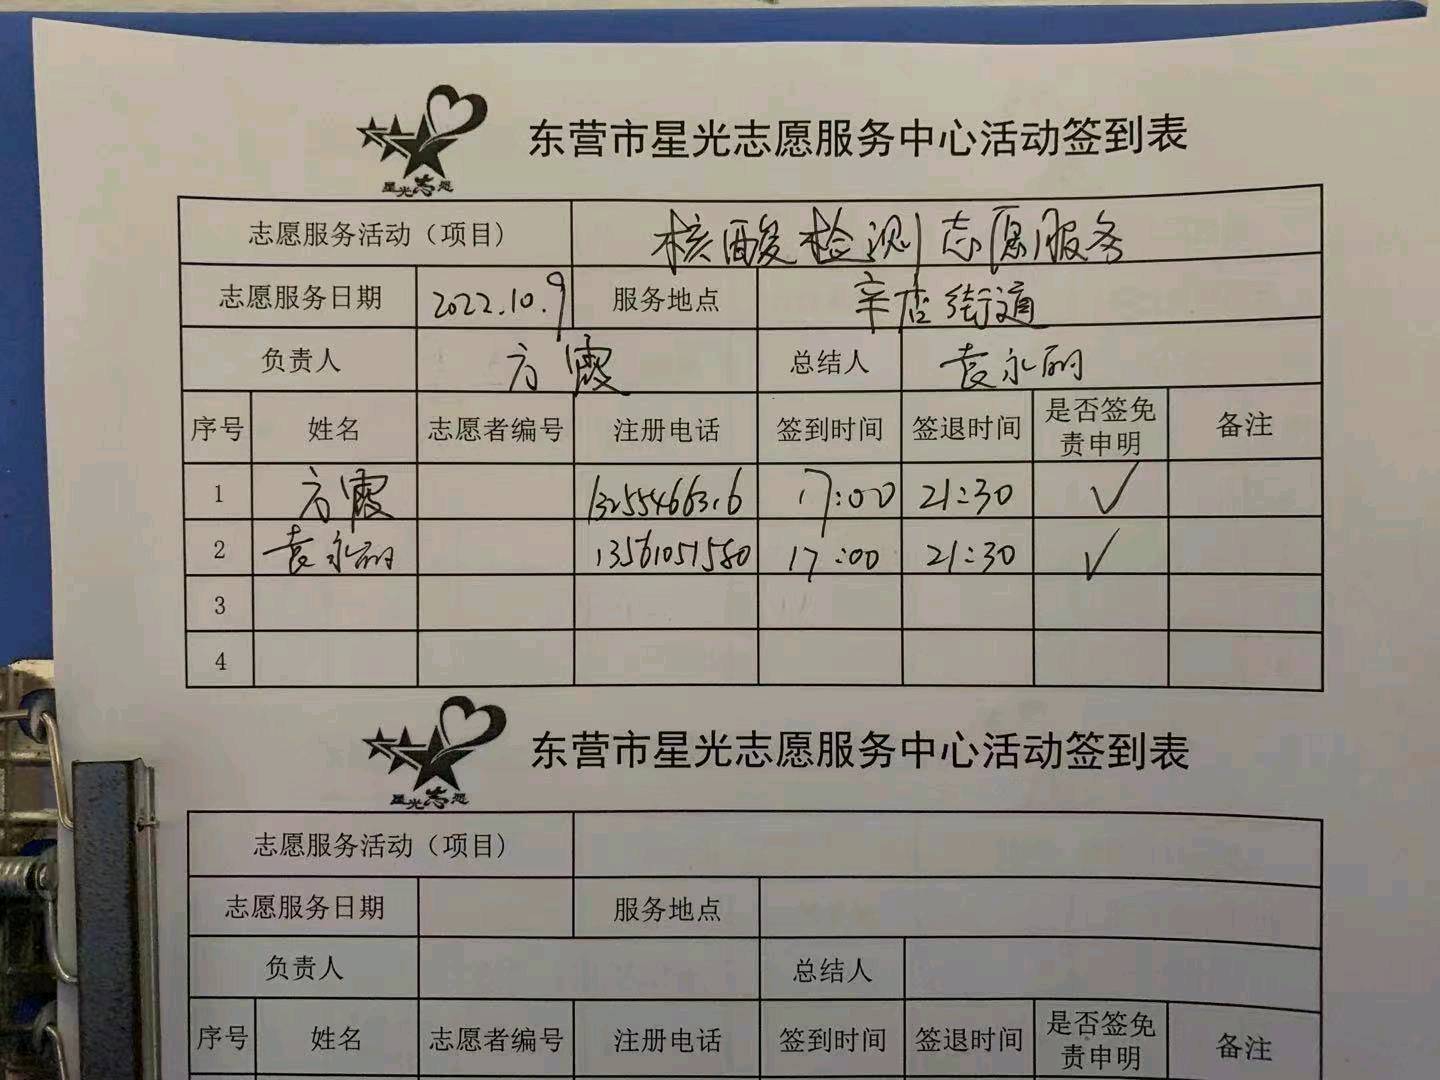 星光志愿
东营市星光志愿服务中心活动签到表
志愿服务活动（项目） 核酸检测志愿服务
志愿服务日期 2022.10.9 服务地点 辛店街道
负责人 方霞 总结人 袁永丽
序号 姓名 志愿者编号 注册电话 签到时间 签退时间 是否签免责申明 备注
1 方霞 17:00 21:30 ✓
2 袁永丽 13561051580 17:00 21:30 ✓
3
4
星光志愿
东营市星光志愿服务中心活动签到表
志愿服务活动（项目）
志愿服务日期 服务地点
负责人 总结人
序号 姓名 志愿者编号 注册电话 签到时间 签退时间 是否签免责申明 备注